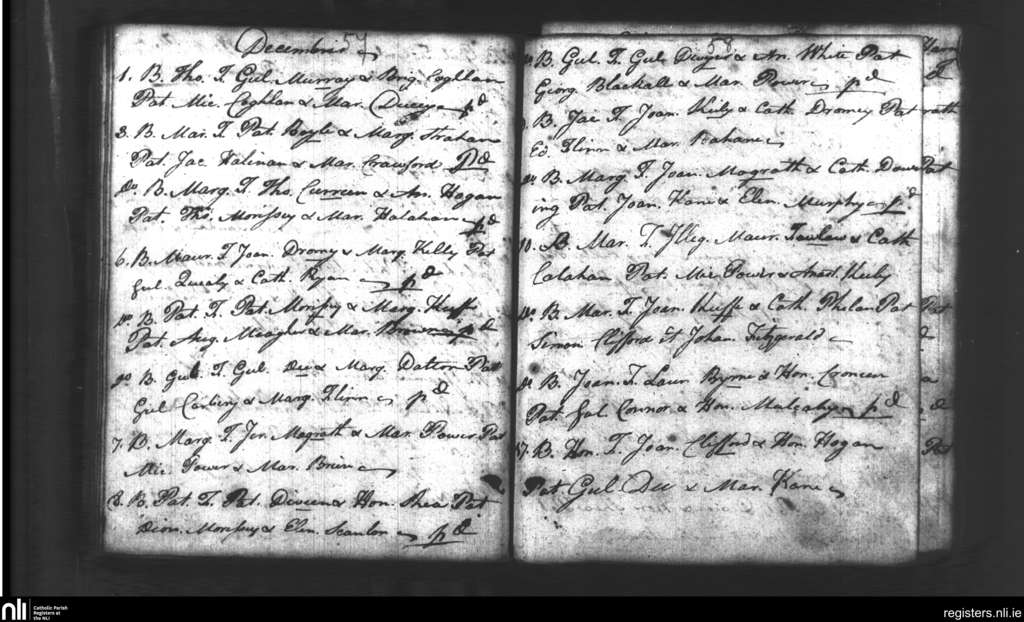 Decembris 57
1. B. Tho. F. Gul. Murray & Brig. Coghlan
Pat. Mic. Coghlan & Mar. Ducey pd
3. B. Mar. F. Pat. Boyle & Marg. Strahan
Pat. Jac. Halinan & Mar. Crawford pd
do. B. Marg. F. Tho. Curreen & An. Hogan
Pat. Tho. Morissy & Mar. Halahan pd
6. B. Maur. F. Joan. Dromy & Marg. Kelly Pat
Gul. Quealy & Cath. Ryan pd
do. B. Pat. F. Pat. Morissy & Marg. Huff
Pat. Aug. Meagher & Mar. Browne pd
do B. Gul. F. Gul. Dee & Marg. Datton Pat
Gul Carbery & Marg. Flinn pd
7. B. Marg. F. Jon. Magrath & Mar. Power Pat
Mic. Power & Mar. Brien
8. B. Pat. F. Pat. Diveen & Hon. Shea Pat
Dion. Morissy & Elen. Scanlon pd
58
B. Gul. F. Gul. Dwyer & An. White Pat
Georg. Blackall & Mar. Power pd
B. Jac F. Joan. Kiely & Cath. Dromey Pat
Ed. Flinn & Mar. Bahane
do. B. Marg. F. Joan. Magrath & Cath. Down
ing Pat. Joan. Kane & Elen. Murphy pd
10. B. Mar. F. Illeg. Maur. Lawlaw & Cath
Calahan Pat. Mic Power & Anast. Kiely
do. B. Mar. F. Joan. Kieffe & Cath. Phelan Pat
Simon Clifford & Johan. Fitzgerald
do B. Joan. F. Laur Byrne & Hon. Croneen
Pat. Gul Connor & Hon. Mulcahy pd
17. B. Hon. F. Joan. Clifford & Hon. Hogan
Pat Gul Dee & Mar. Kane
nli
Catholic Parish
Registers at
the NLI
registers.nli.ie